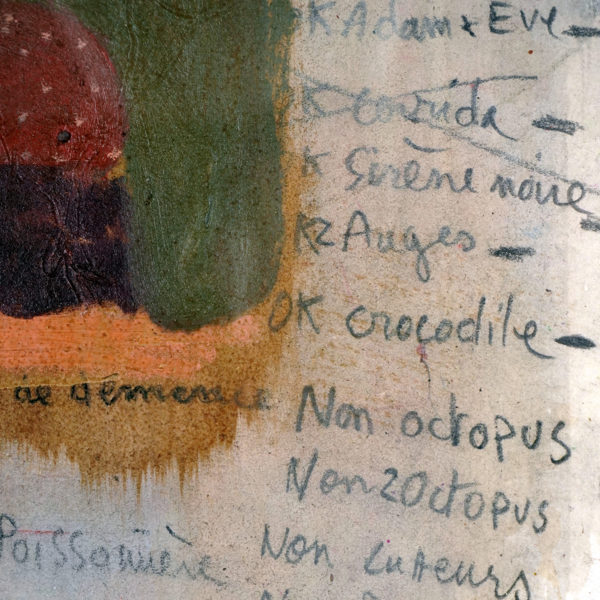 K Adam & Eve -
K corrida -
K Sirène noire
K 2 Anges -
OK crocodile -
de démence
Non octopus
Non 2 Octopus
Poissonnière
Non Lutteurs